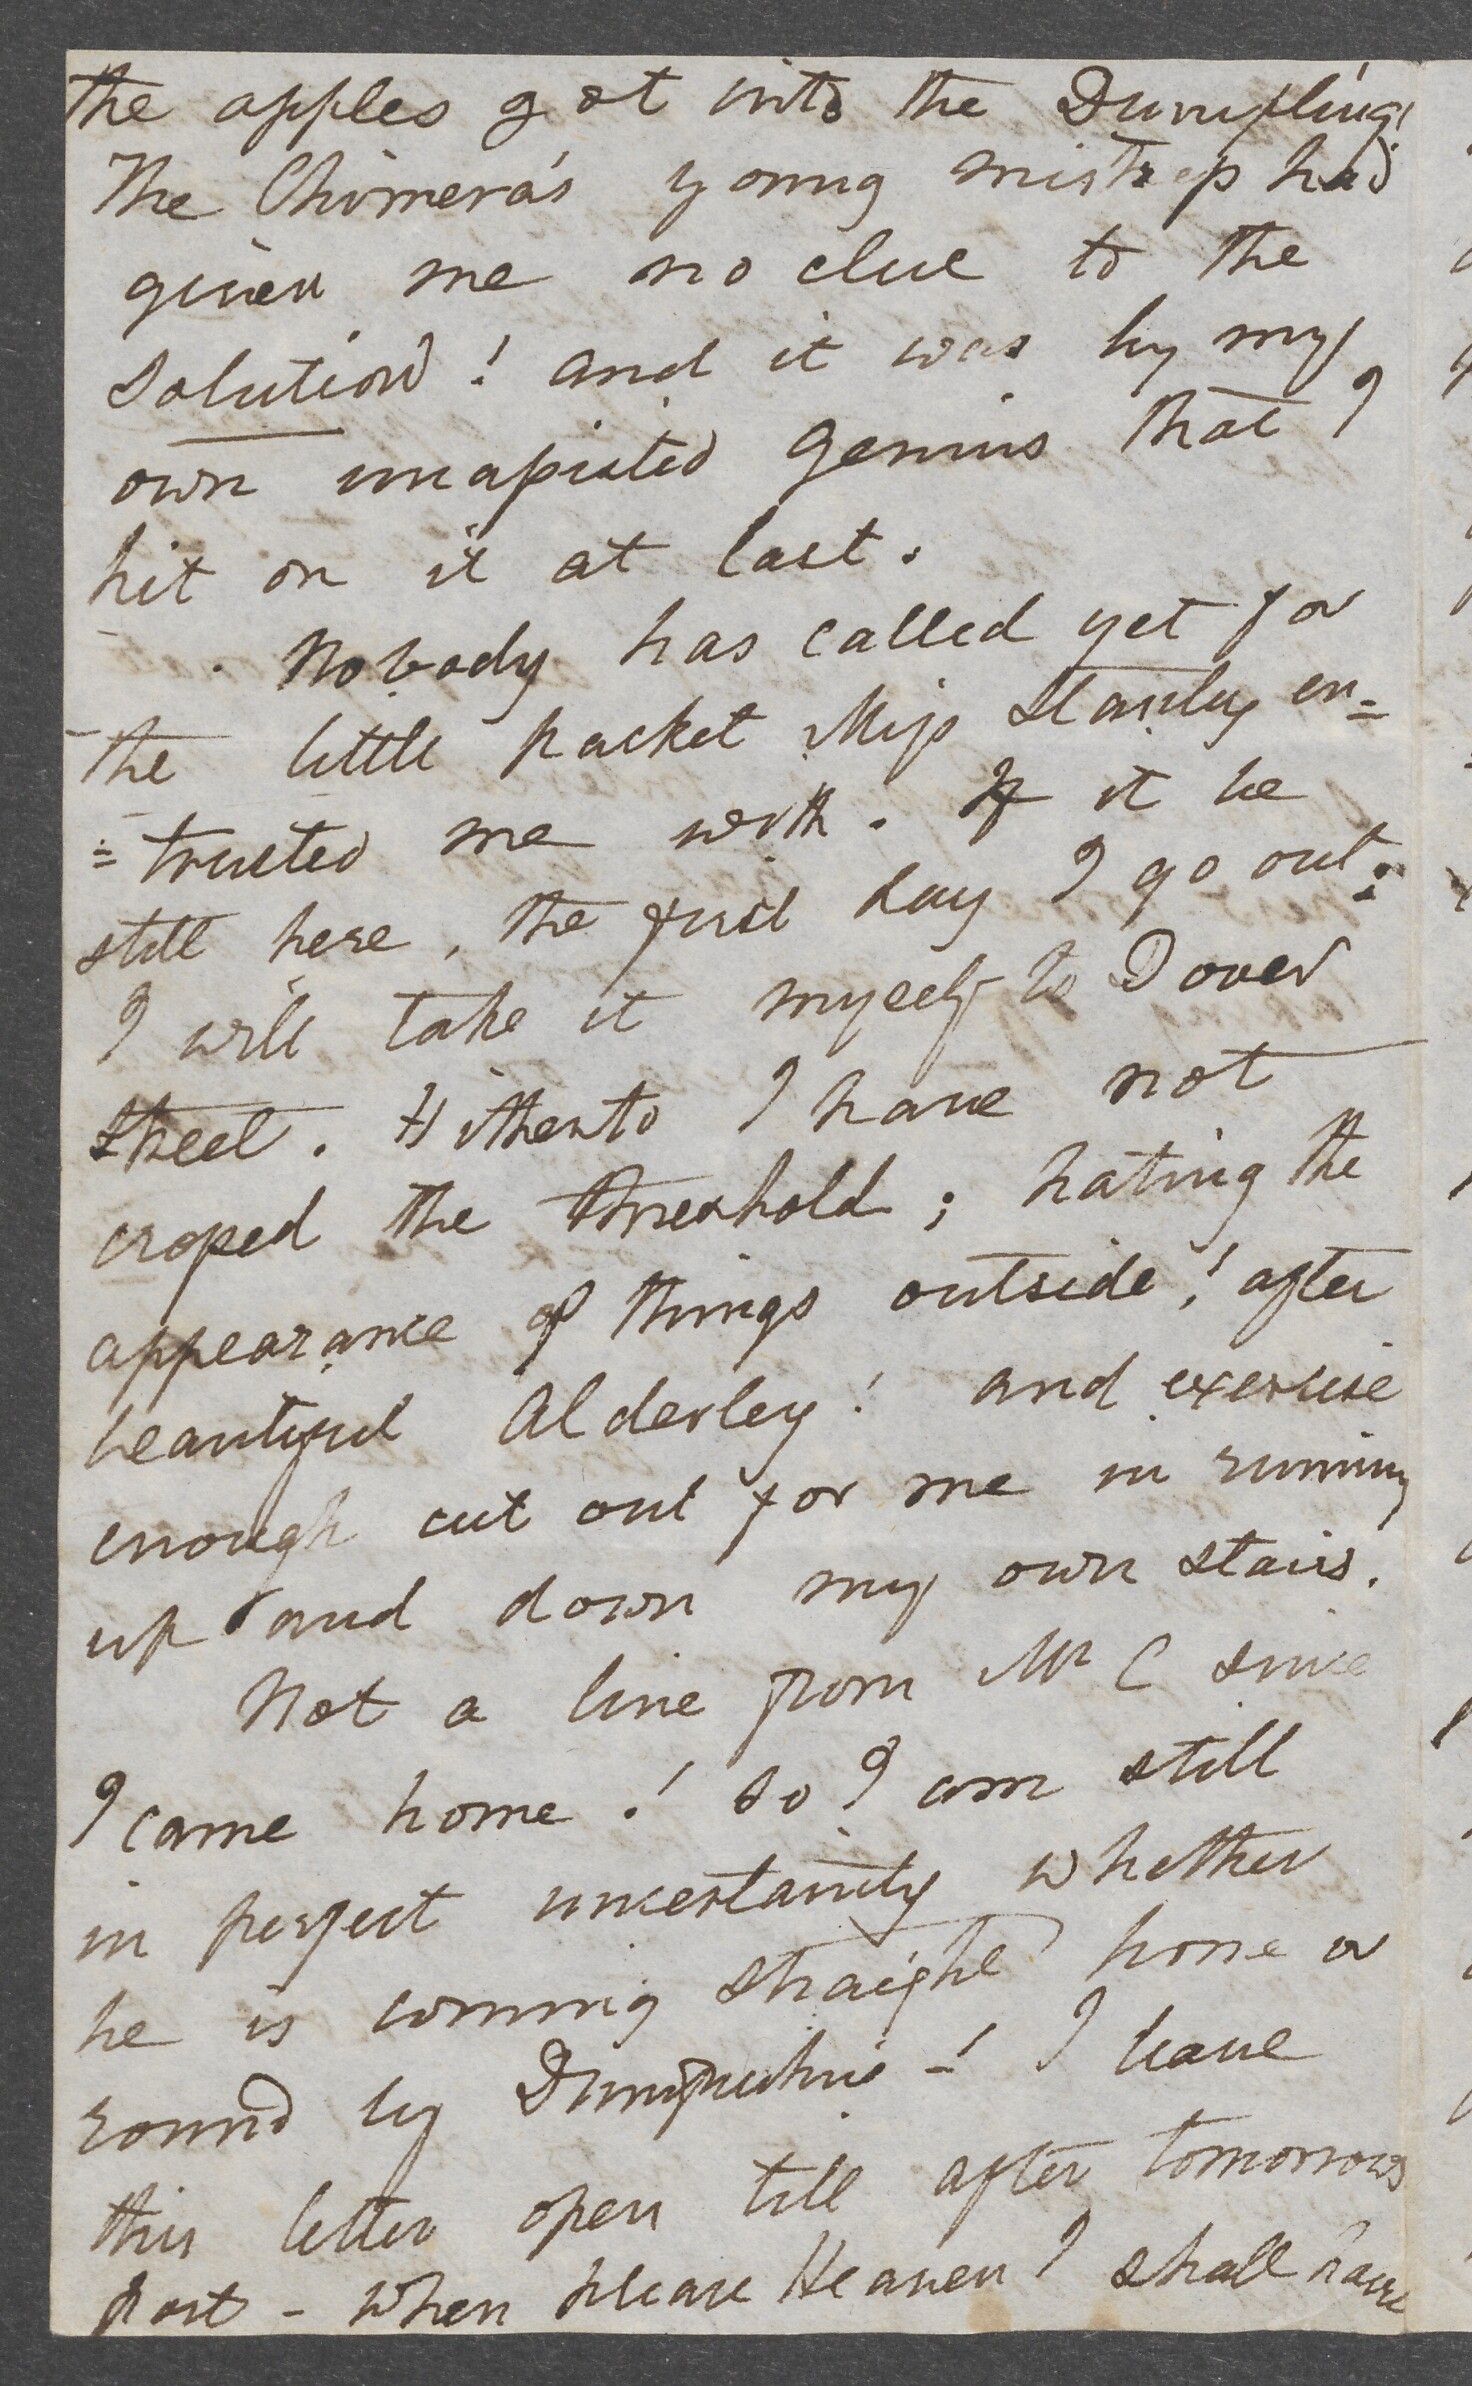 the apples got into the Dumpling!
The Chimera's young mistress had
given me no clue to the
solution! and it was by my
own unassisted genius that I
hit on it at last.
Nobody has called yet for
the little packet Miss Stanley en=
=trusted me with. If it be
still here, the first day I go out;
I will take it myself to Dover
Street. Hitherto I have not
crossed the threshold; hating the
appearance of things outside! after
beautiful Alderley! and exercise
enough cut out for me in running
up and down my own stairs.
Not a line from Mr C since
I came home! So I am still
in perfect uncertainty whether
he is coming straight home or
round by Dumfriesshire—! I leave
this letter open till after tomorrows
post - when please Heaven I shall have